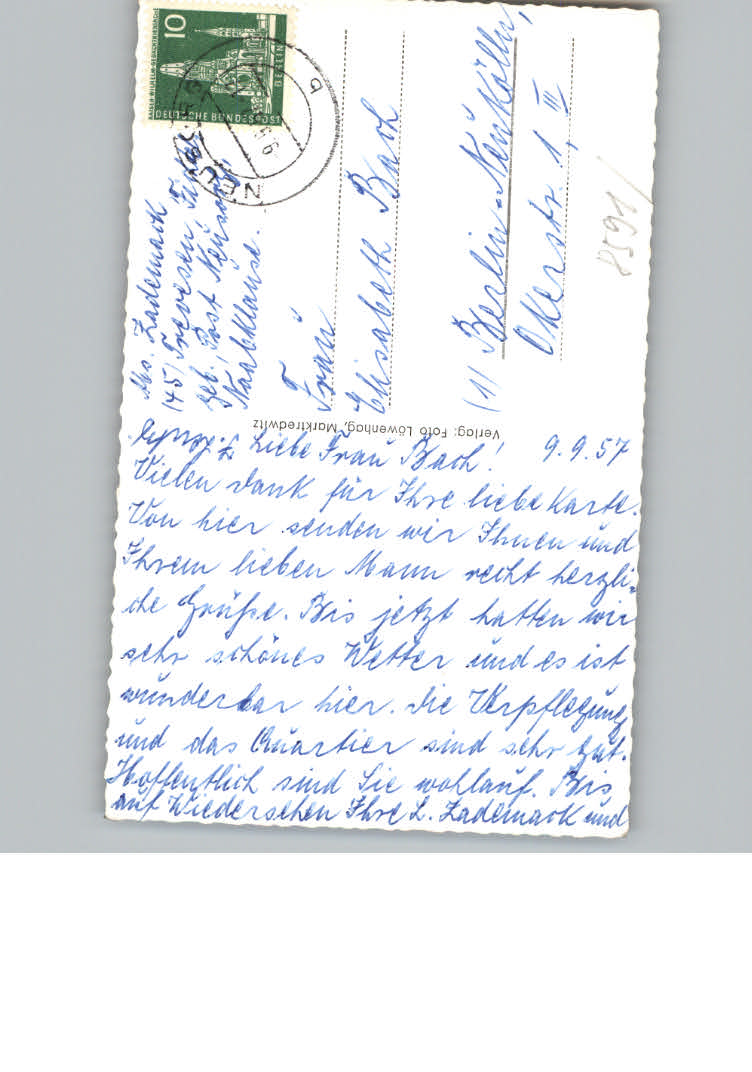 10
KAISER-WILHELM-GEDÄCHTNISKIRCHE
BERLIN
DEUTSCHE BUNDESPOST
NEUS
b
Abs. Lademack
(45) Trevesen,
Post
Naabklause.
Frau
Elisabeth Bach
(1) Berlin-Neukölln,
Okerstr. 1, III
8591/
Verlag: Foto Löwenhag, Marktredwitz
9.9.57
Liebe Frau Bach!
Vielen Dank für Ihre liebe Karte.
Von hier senden wir Ihnen und
Ihrem lieben Mann recht herzli-
che Grüße. Bis jetzt hatten wir
sehr schönes Wetter und es ist
wunderbar hier. Die Verpflegung
und das Quartier sind sehr gut.
Hoffentlich sind Sie wohlauf. Bis
auf Wiedersehen Ihre L. Lademack und